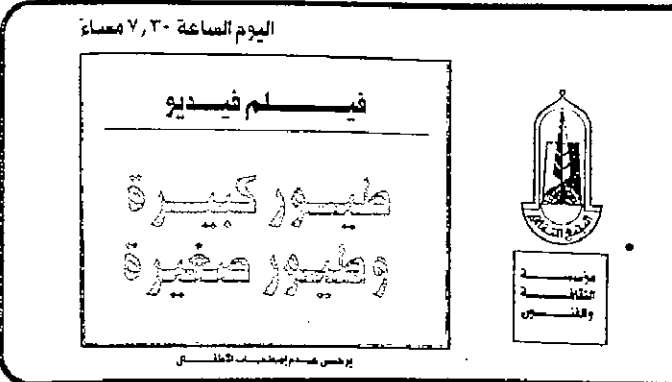 اليوم الساعة ٧,٣٠ مساءً
فيلم فيديو
طيور كبيرة
وطيور صغيرة
يرجى عدم إصطحاب الأطفال
المجمع الثقافي
مؤسسة
الثقافة
والفنون